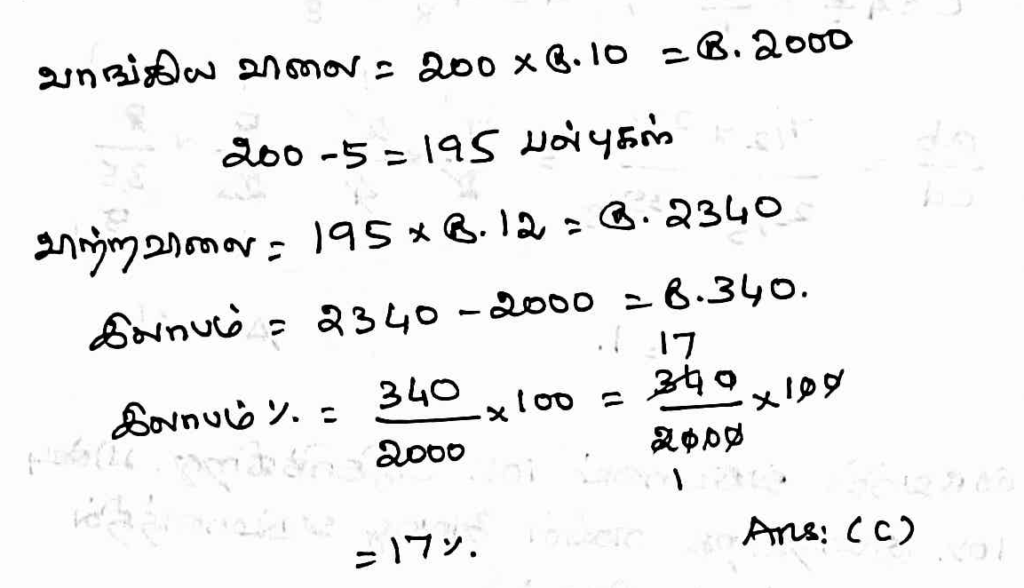 வாங்கிய விலை = 200 x ரூ.10 = ரூ.2000
200 - 5 = 195 பல்புகள்
விற்றவிலை = 195 x ரூ.12 = ரூ.2340
இலாபம் = 2340 - 2000 = ரூ.340.
17
இலாபம் % = 340/2000 x 100 = 340/2000 x 100
1
= 17%. Ans: (C)